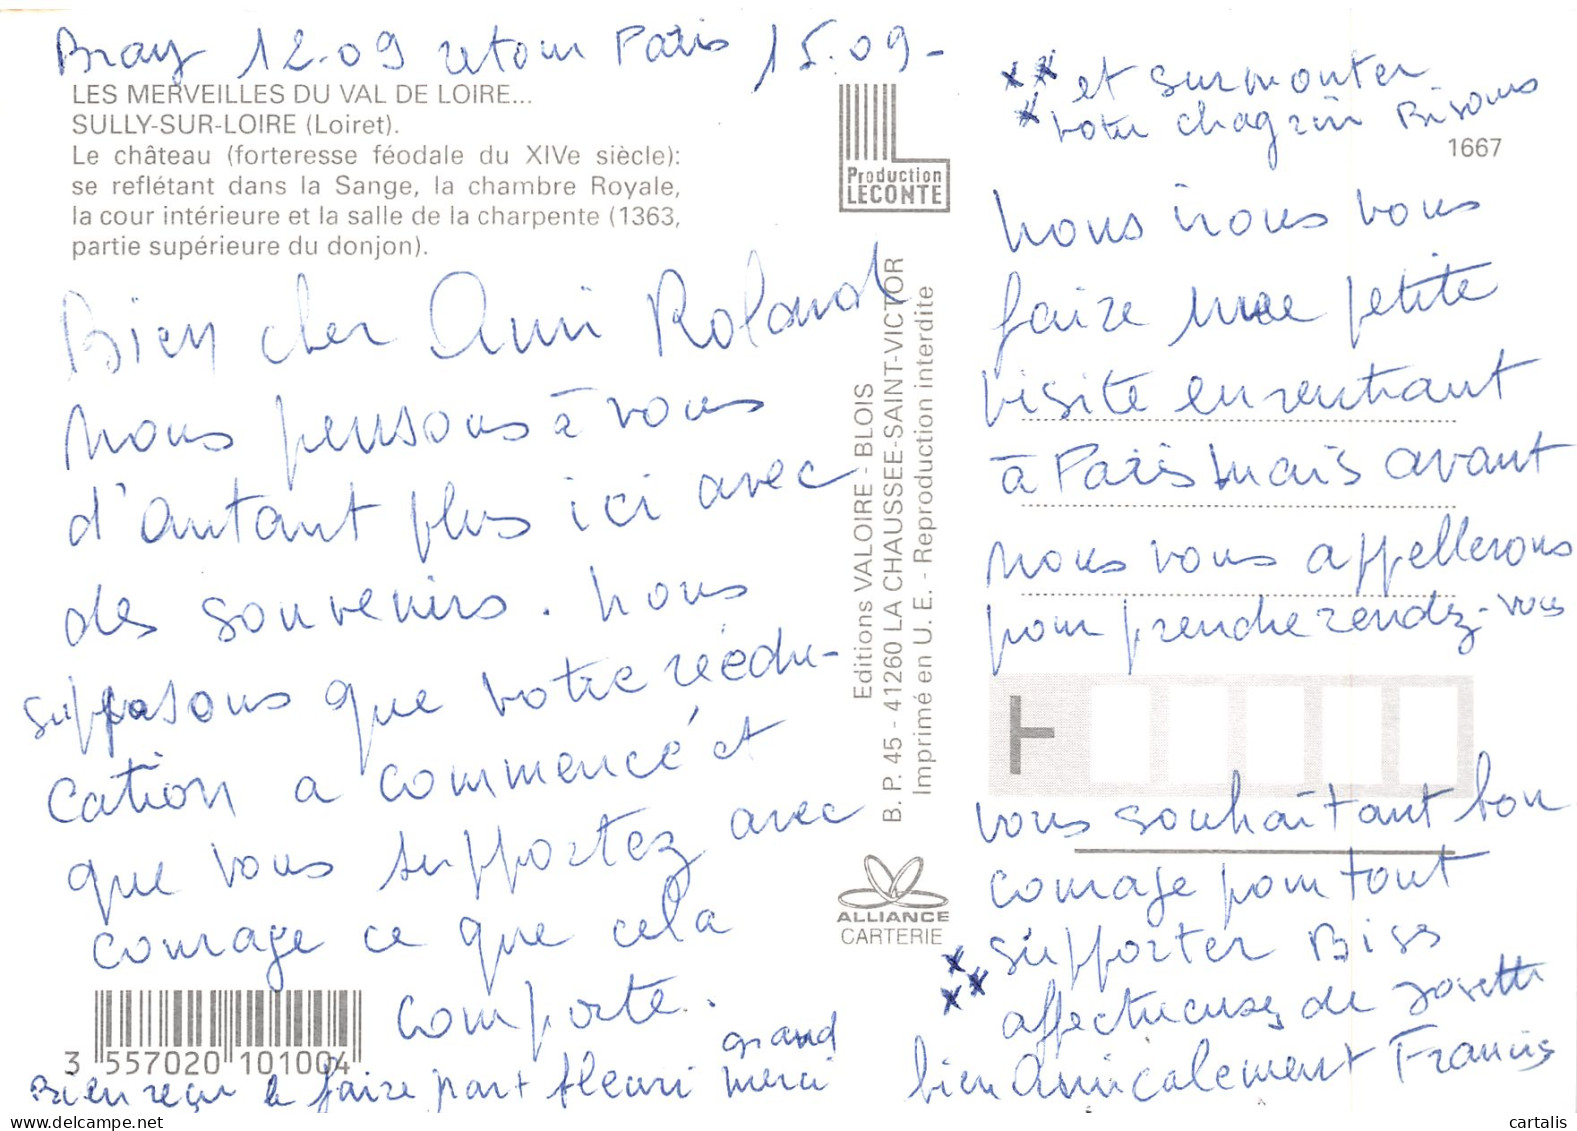 Bray 12.09 retour Paris 15.09-
LES MERVEILLES DU VAL DE LOIRE...
SULLY-SUR-LOIRE (Loiret).
Le château (forteresse féodale du XIVe siècle):
se reflétant dans la Sange, la chambre Royale,
la cour intérieure et la salle de la charpente (1363,
partie supérieure du donjon).
Bien cher Ami Roland
nous pensons à vous
d'autant plus ici avec
des souvenirs. nous
supposons que votre réédu-
cation a commencé et
que vous supportez avec
courage ce que cela
comporte.
3 557020 101004
Bien reçu le faire part Henri grand merci
Production
LECONTE
Editions VALOIRE - BLOIS
B. P. 45 - 41260 LA CHAUSSEE-SAINT-VICTOR
Imprimé en U. E. - Reproduction interdite
ALLIANCE
CARTERIE
xx et surmonter
x votre chagrin Bisous
1667
nous irons vous
faire une petite
visite en rentrant
à Paris mais avant
nous vous appellerons
pour prendre rendez-vous
vous souhaitant bon
courage pour tout
xxx supporter Bises
affectueuses de Josette
bien Amicalement Francis
cartalis